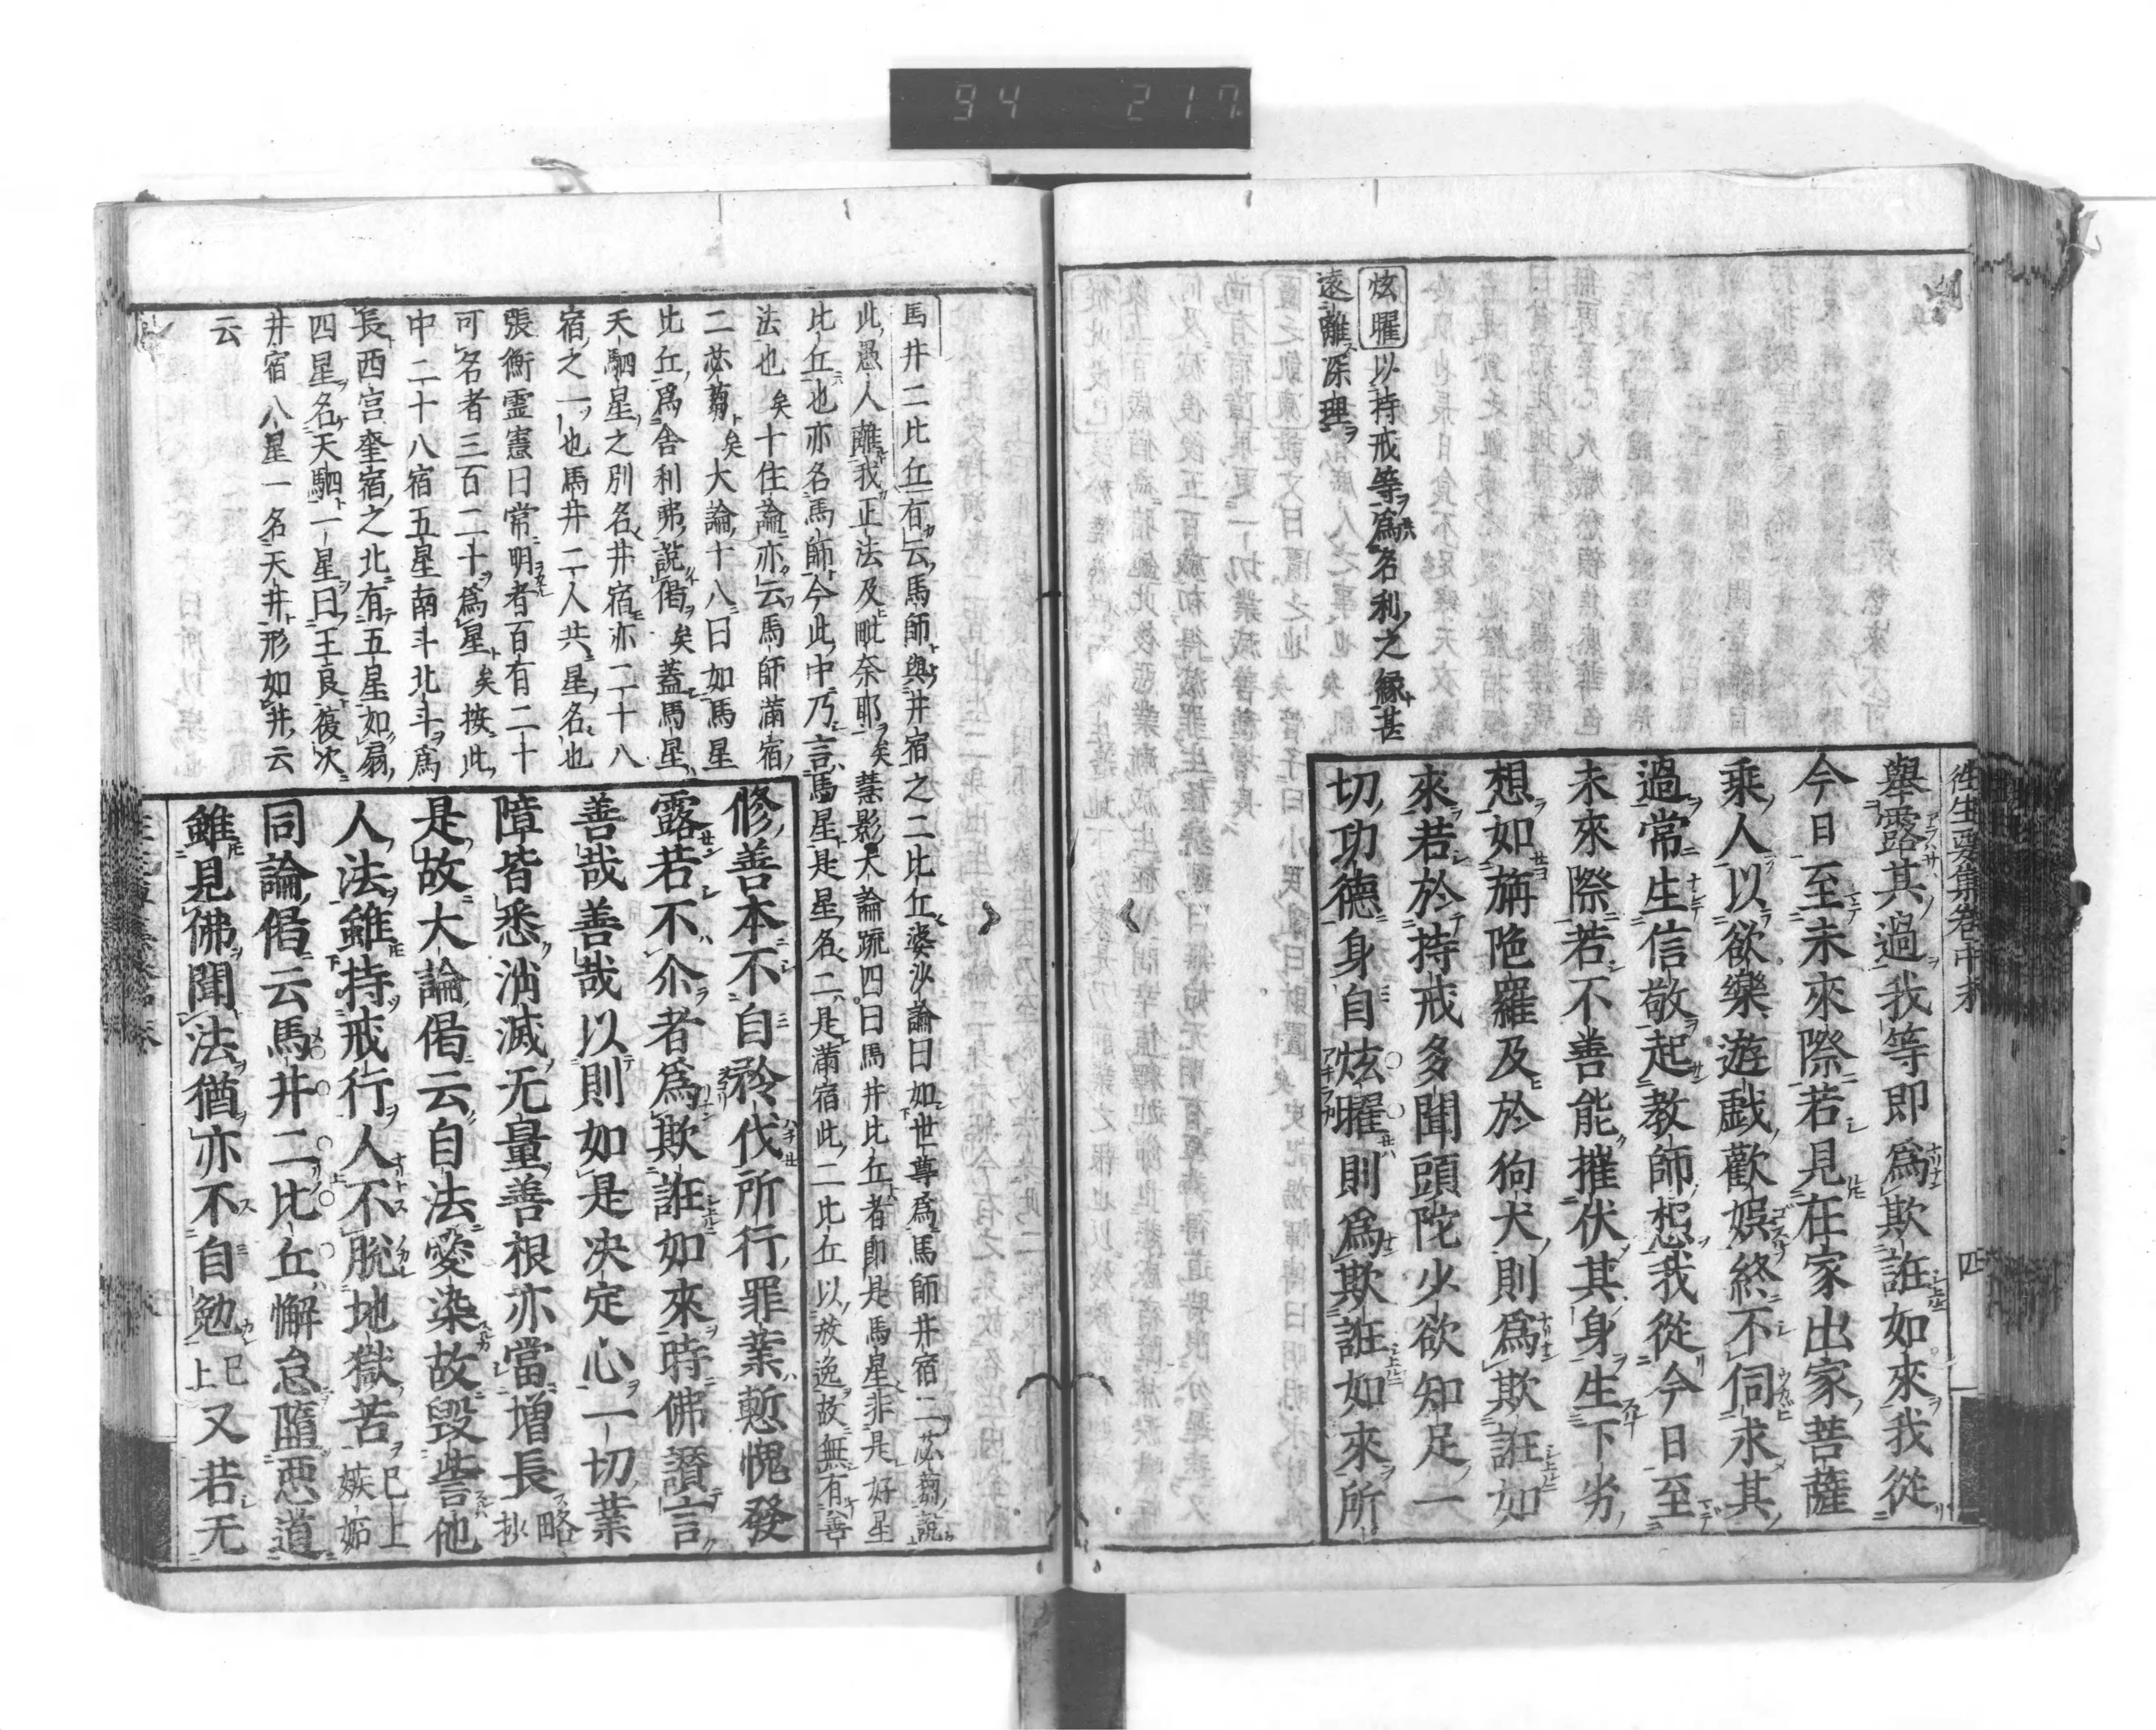 94 217
往生要集卷中末 四
擧露其過我等即爲欺誑如來我從
今日至未來際若見在家出家菩薩
乘人以欲樂遊戯歡娯終不伺求其
過常生信敬起教師想我從今日至
未來際若不善能摧伏其身生下劣
想如旃陁羅及於狗犬則爲欺誑如
來若於持戒多聞頭陀少欲知足一
切功德身自炫曜則爲欺誑如來所
炫曜以持戒等爲名利之縁甚
遠離深理
修善本不自矜伐所行罪業慙愧發
露若不尒者爲欺誑如來時佛讃言
善哉善哉以則如是决定心一切業
障皆悉消滅无量善根亦當增長略抄
是故大論偈云自法愛染故毀呰他
人法雖持戒行人不脱地獄苦已上嫉妬
同論偈云馬井二比丘懈怠墮惡道
雖見佛聞法猶亦不自勉已上又若无
馬井二比丘有云馬師與井宿之二比丘婆沙論曰如世尊爲馬師井宿二苾蒭說
此愚人離我正法及毗奈耶矣慧影大論疏四曰馬井比丘者即是馬星非是好星
比丘也亦名馬師今此中乃言馬星是星名二是滿宿此二比丘以放逸故無有善
法也矣十住論亦云馬師滿宿
二苾蒭矣大論十八曰如馬星
比丘爲舍利弗說偈矣蓋馬星
天駟星之別名井宿亦二十八
宿之一也馬井二人共星名也
張衡霊憲曰常明者百有二十
可名者三百二十爲星矣按此
中二十八宿五星南斗北斗爲
長西宮奎宿之北有五星如扇
四星名天駟一星曰王良復次
井宿八星一名天井形如井云
云